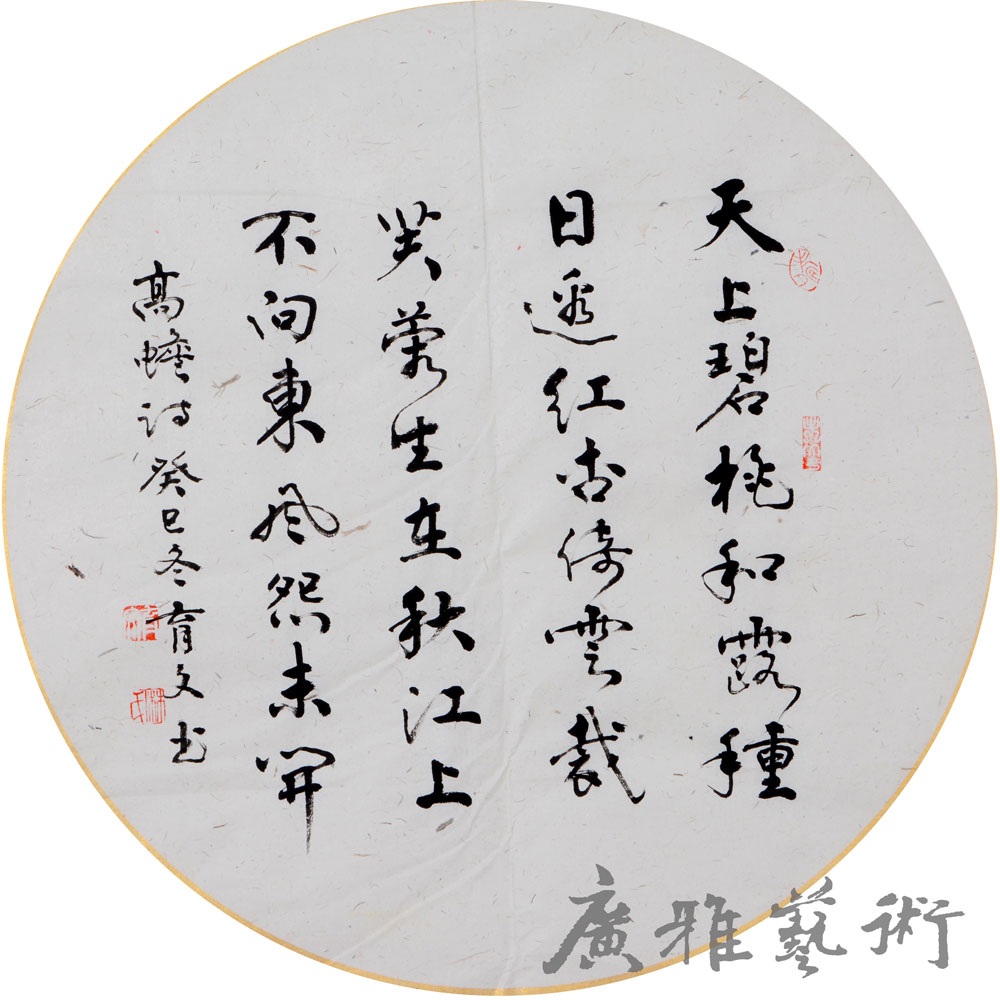 天上碧桃和露種
日邊红杏倚雲裁
芙蓉生在秋江上
不向東風怨未開
高蟾诗癸巳冬育文书
廣雅藝術